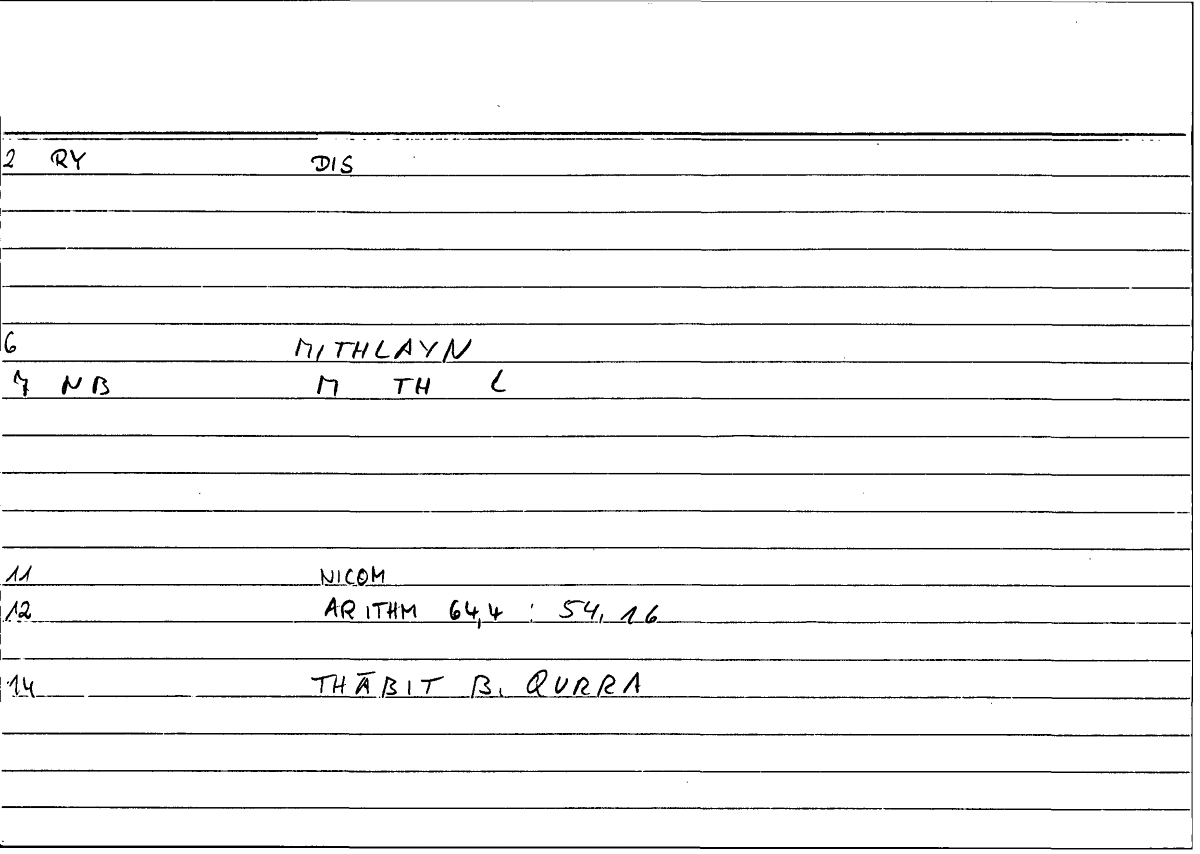 2 RY DIS
6 MITHLAYN
7 NB M TH L
11 NICOM
12 ARITHM 64,4 : 54, 16
14 THĀBIT B. QURRA